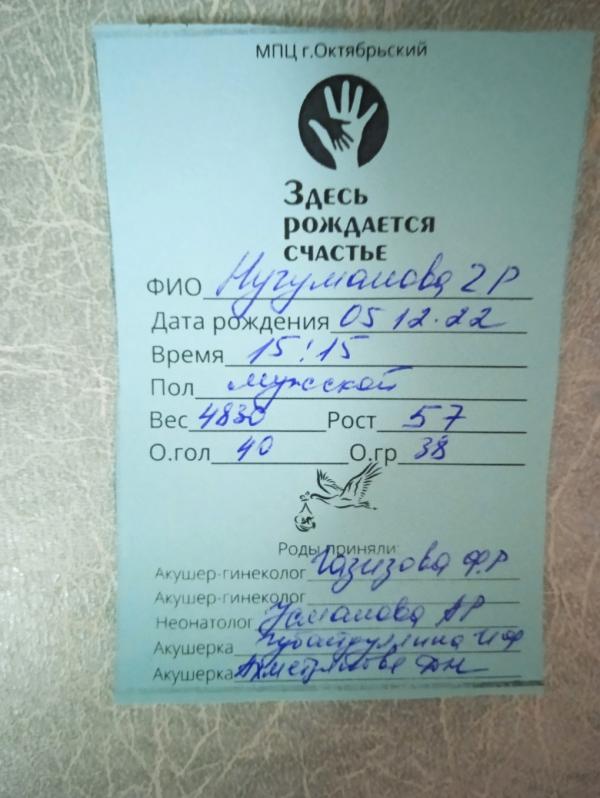 МПЦ г.Октябрьский
Здесь
рождается
счастье
ФИО Нугуманова 2 Р
Дата рождения 05 12.22
Время 15:15
Пол мужской
Вес 4830 Рост 57
О.гол 40 О.гр 38
Роды приняли:
Акушер-гинеколог Газизова Ф.Р
Акушер-гинеколог
Неонатолог Усманова АР
Акушерка Губайдуллина
Акушерка